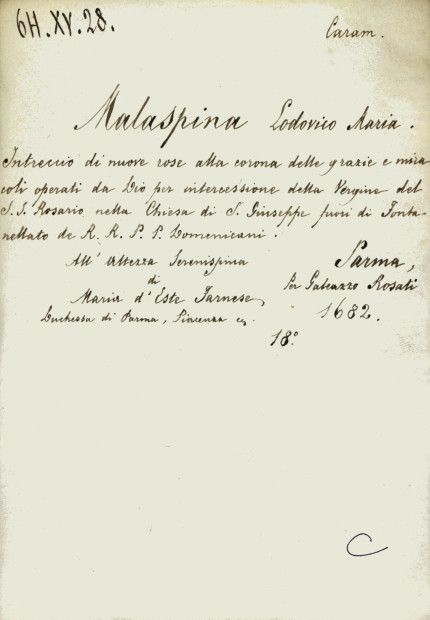 6H.XV.28.
Caram.
Malaspina Lodovico Maria.
Intreccio di nuove rose alla corona delle grazie e mira
coli operati da Dio per intercessione della Vergine del
S. S. Rosario nella Chiesa di S. Giuseppe fuori di Fonta
nellato de R. R. P. P. Domenicani.
All' Altezza Serenissima
di
Maria d'Este Farnese,
Duchessa di Parma, Piacenza
Parma,
Per Galeazzo Rosati
1682.
18°
C